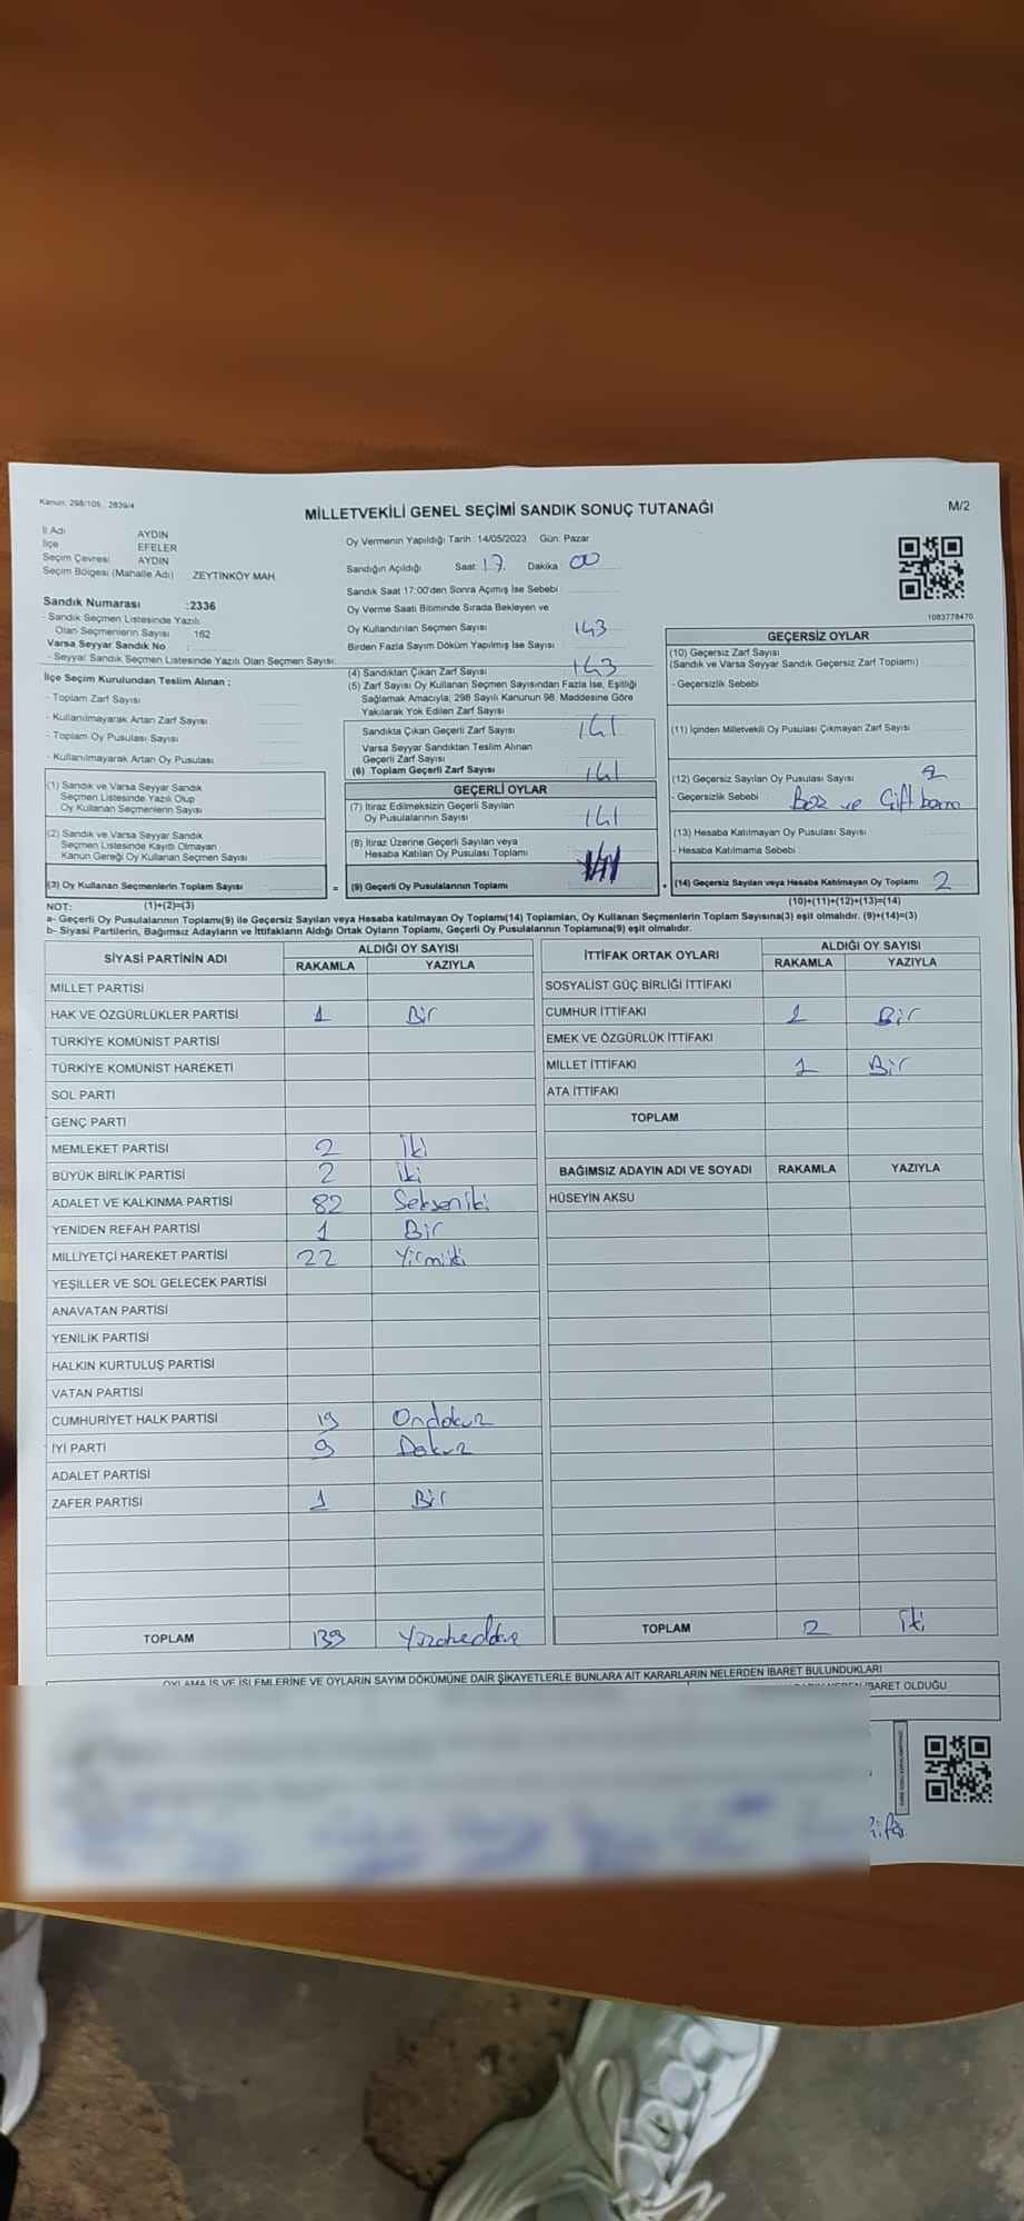 Kanun: 298/105, 2839/4
MİLLETVEKİLİ GENEL SEÇİMİ SANDIK SONUÇ TUTANAĞI
M/2
İl Adı AYDIN
İlçe EFELER
Seçim Çevresi AYDIN
Seçim Bölgesi (Mahalle Adı) ZEYTİNKÖY MAH.
Sandık Numarası :2336
- Sandık Seçmen Listesinde Yazılı
Olan Seçmenlerin Sayısı 162
Varsa Seyyar Sandık No :
- Seyyar Sandık Seçmen Listesinde Yazılı Olan Seçmen Sayısı:
İlçe Seçim Kurulundan Teslim Alınan :
- Toplam Zarf Sayısı
- Kullanılmayarak Artan Zarf Sayısı
- Toplam Oy Pusulası Sayısı
- Kullanılmayarak Artan Oy Pusulası
(1) Sandık ve Varsa Seyyar Sandık
Seçmen Listesinde Yazılı Olup
Oy Kullanan Seçmenlerin Sayısı
(2) Sandık ve Varsa Seyyar Sandık
Seçmen Listesinde Kayıtlı Olmayan
Kanun Gereği Oy Kullanan Seçmen Sayısı
(3) Oy Kullanan Seçmenlerin Toplam Sayısı
=
Oy Vermenin Yapıldığı Tarih :14/05/2023 Gün: Pazar
Sandığın Açıldığı Saat 17 Dakika 00
Sandık Saat 17:00'den Sonra Açımış İse Sebebi
Oy Verme Saati Bitiminde Sırada Bekleyen ve
Oy Kullandırılan Seçmen Sayısı 143
Birden Fazla Sayım Döküm Yapılmış İse Sayısı
(4) Sandıktan Çıkan Zarf Sayısı 143
(5) Zarf Sayısı Oy Kullanan Seçmen Sayısından Fazla İse, Eşitliği
Sağlamak Amacıyla, 298 Sayılı Kanunun 98. Maddesine Göre
Yakılarak Yok Edilen Zarf Sayısı
Sandıkta Çıkan Geçerli Zarf Sayısı 141
Varsa Seyyar Sandıktan Teslim Alınan
Geçerli Zarf Sayısı
(6) Toplam Geçerli Zarf Sayısı 141
GEÇERLİ OYLAR
(7) İtiraz Edilmeksizin Geçerli Sayılan
Oy Pusulalarının Sayısı 141
(8) İtiraz Üzerine Geçerli Sayılan veya
Hesaba Katılan Oy Pusulası Toplamı
(9) Geçerli Oy Pusulalarının Toplamı
141
+
1083778470
GEÇERSİZ OYLAR
(10) Geçersiz Zarf Sayısı
(Sandık ve Varsa Seyyar Sandık Geçersiz Zarf Toplamı)
- Geçersizlik Sebebi
(11) İçinden Milletvekili Oy Pusulası Çıkmayan Zarf Sayısı
(12) Geçersiz Sayılan Oy Pusulası Sayısı 2
- Geçersizlik Sebebi Boz ve Çift
(13) Hesaba Katılmayan Oy Pusulası Sayısı
- Hesaba Katılmama Sebebi :
(14) Geçersiz Sayılan veya Hesaba Katılmayan Oy Toplamı 2
NOT: (1)+(2)=(3)
(10)+(11)+(12)+(13)=(14)
a- Geçerli Oy Pusulalarının Toplamı(9) ile Geçersiz Sayılan veya Hesaba katılmayan Oy Toplamı(14) Toplamları, Oy Kullanan Seçmenlerin Toplam Sayısına(3) eşit olmalıdır. (9)+(14)=(3)
b- Siyasi Partilerin, Bağımsız Adayların ve İttifakların Aldığı Ortak Oyların Toplamı, Geçerli Oy Pusulalarının Toplamına(9) eşit olmalıdır.
SİYASİ PARTİNİN ADI ALDIĞI OY SAYISI
RAKAMLA YAZIYLA
MİLLET PARTİSİ
HAK VE ÖZGÜRLÜKLER PARTİSİ 1 Bir
TÜRKİYE KOMÜNİST PARTİSİ
TÜRKİYE KOMÜNİST HAREKETİ
SOL PARTİ
GENÇ PARTİ
MEMLEKET PARTİSİ 2 İki
BÜYÜK BİRLİK PARTİSİ 2 İki
ADALET VE KALKINMA PARTİSİ 82 Sekseniki
YENİDEN REFAH PARTİSİ 1 Bir
MİLLİYETÇİ HAREKET PARTİSİ 22 Yirmiiki
YEŞİLLER VE SOL GELECEK PARTİSİ
ANAVATAN PARTİSİ
YENİLİK PARTİSİ
HALKIN KURTULUŞ PARTİSİ
VATAN PARTİSİ
CUMHURİYET HALK PARTİSİ 19 Ondokuz
İYİ PARTİ 9 Dokuz
ADALET PARTİSİ
ZAFER PARTİSİ 1 Bir
TOPLAM 139
İTTİFAK ORTAK OYLARI ALDIĞI OY SAYISI
RAKAMLA YAZIYLA
SOSYALİST GÜÇ BİRLİĞİ İTTİFAKI
CUMHUR İTTİFAKI 1 Bir
EMEK VE ÖZGÜRLÜK İTTİFAKI
MİLLET İTTİFAKI 1 Bir
ATA İTTİFAKI
TOPLAM
BAĞIMSIZ ADAYIN ADI VE SOYADI RAKAMLA YAZIYLA
HÜSEYİN AKSU
TOPLAM 2 İki
OYLAMA İŞ VE İŞLEMLERİNE VE OYLARIN SAYIM DÖKÜMÜNE DAİR ŞİKAYETLERLE BUNLARA AİT KARARLARIN NELERDEN İBARET BULUNDUKLARI
İBARET OLDUĞU